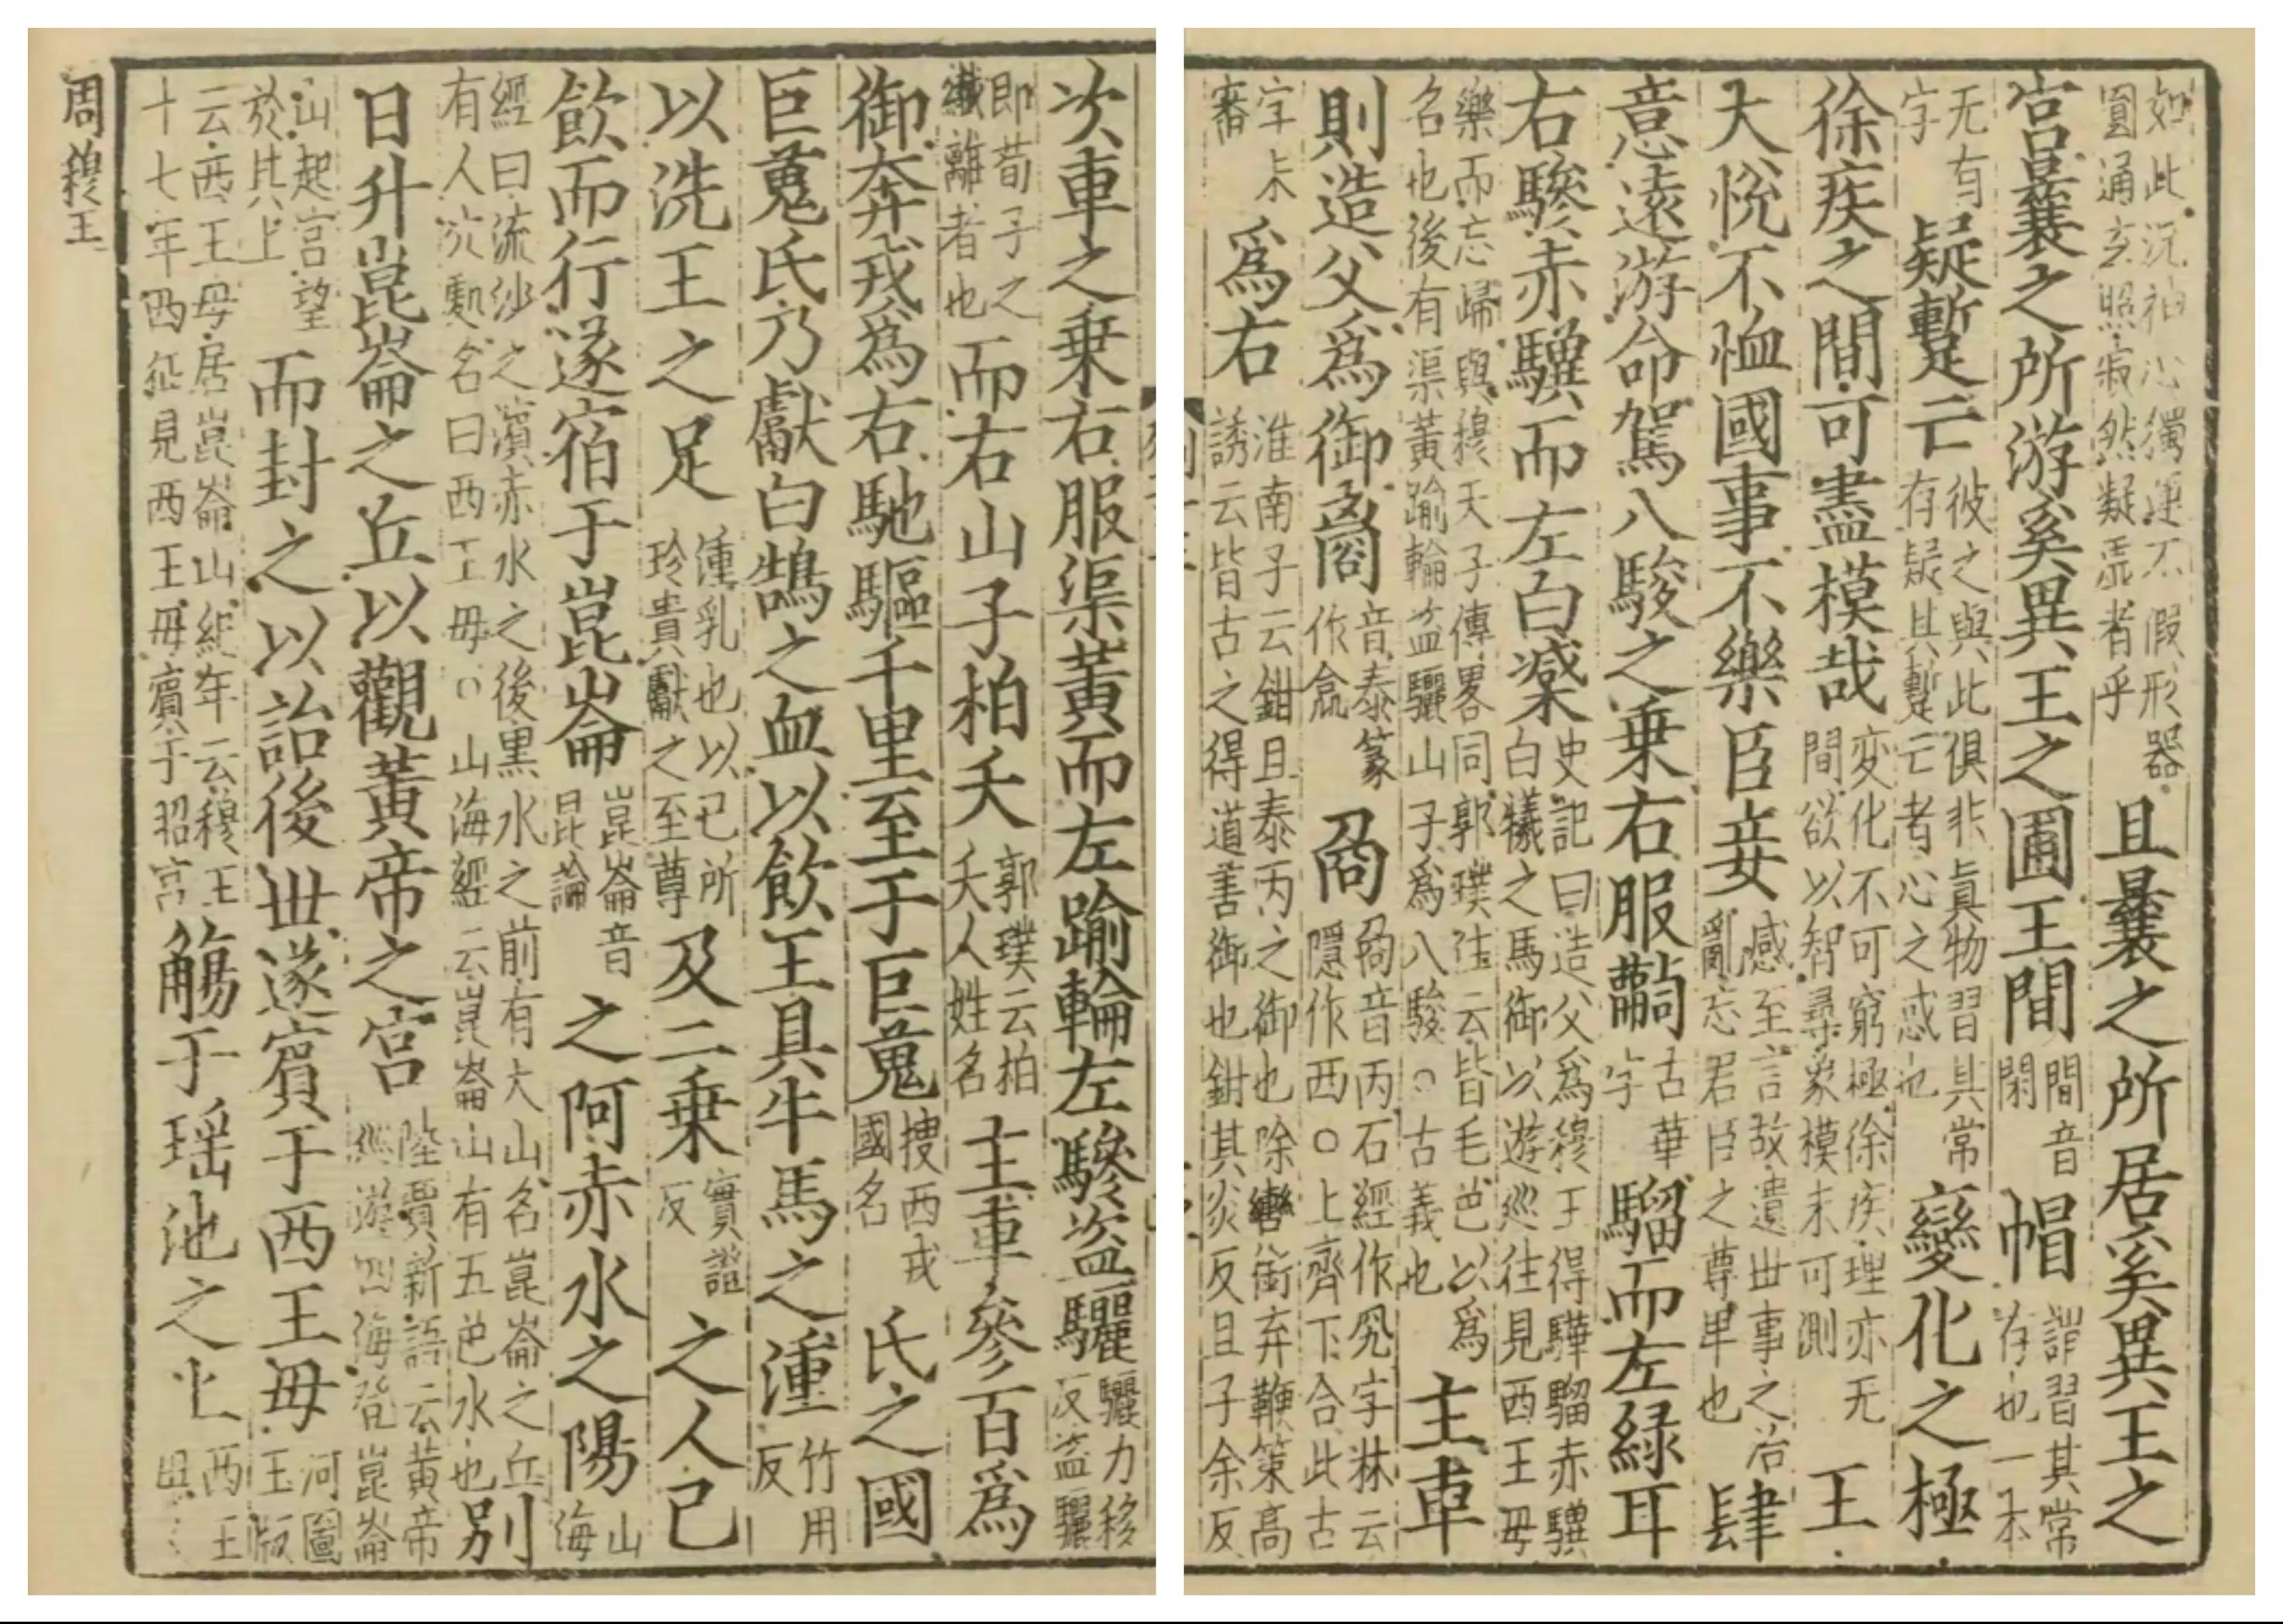 如此沉神心獨運不假形器圓通玄照寂然凝虛者乎且曩之所居奚異王之
宫曩之所游奚異王之圃王間間音閑帽謂習其常存也一本
无有字疑蹔亡彼之與此俱非真物習其常存疑其蹔亡者心之惑也變化之極
徐疾之間可盡模哉变化不可窮極徐疾理亦无間欲以智尋象模未可測王
大悅不恤國事不樂臣妾感至言故遺世事之治亂忘君臣之尊卑也肆
意遠游命駕八駿之乗右服古華字騮而左緑耳
右驂赤驥而左白史記曰造父爲穆王得驊騮赤驥白犧之馬御以遊巡往見西王母
樂而忘歸與穆天子傳畧同郭璞注云皆毛色以爲名也後有渠黃踰輪盜驪山子爲八駿○古義也主車
則造父爲御音泰篆作音丙石經作字林云隱作西○上齊下合此古
字未審爲右淮南子云鉗且泰丙之御也除轡銜弃鞭策高誘云皆古之得道善御也鉗其炎反且子余反
次車之乗右服渠黃而左踰輪左驂盜驪驪力移反盜驪
即荀子之纎離者也而右山子柏夭郭璞云柏夭人姓名主車參百爲
御奔戎爲右馳驅千里至于巨蒐搜西戎國名氏之國
巨蒐氏乃獻白鵠之血以飲王具牛馬之湩竹用反
以洗王之足湩乳也以己所珍貴獻之至尊及二乗實證反之人已
飲而行遂宿于崑崙崑崙音昆論之阿赤水之陽山海
經曰流沙之濱赤水之後黑水之前有大山名崑崙之丘有人穴處名曰西王母○山海經云崑崙山有五色水也别
日升崑崙之丘以觀黃帝之宫陸賈新語云黃帝巡遊四海登崑崙
山起宫望於其上而封之以詒後世遂賓于西王母河圖玉版
云西王母居崑崙山紀年云穆王十七年西征見西王母賓于昭宫觴于瑶池之上西王
周穆王